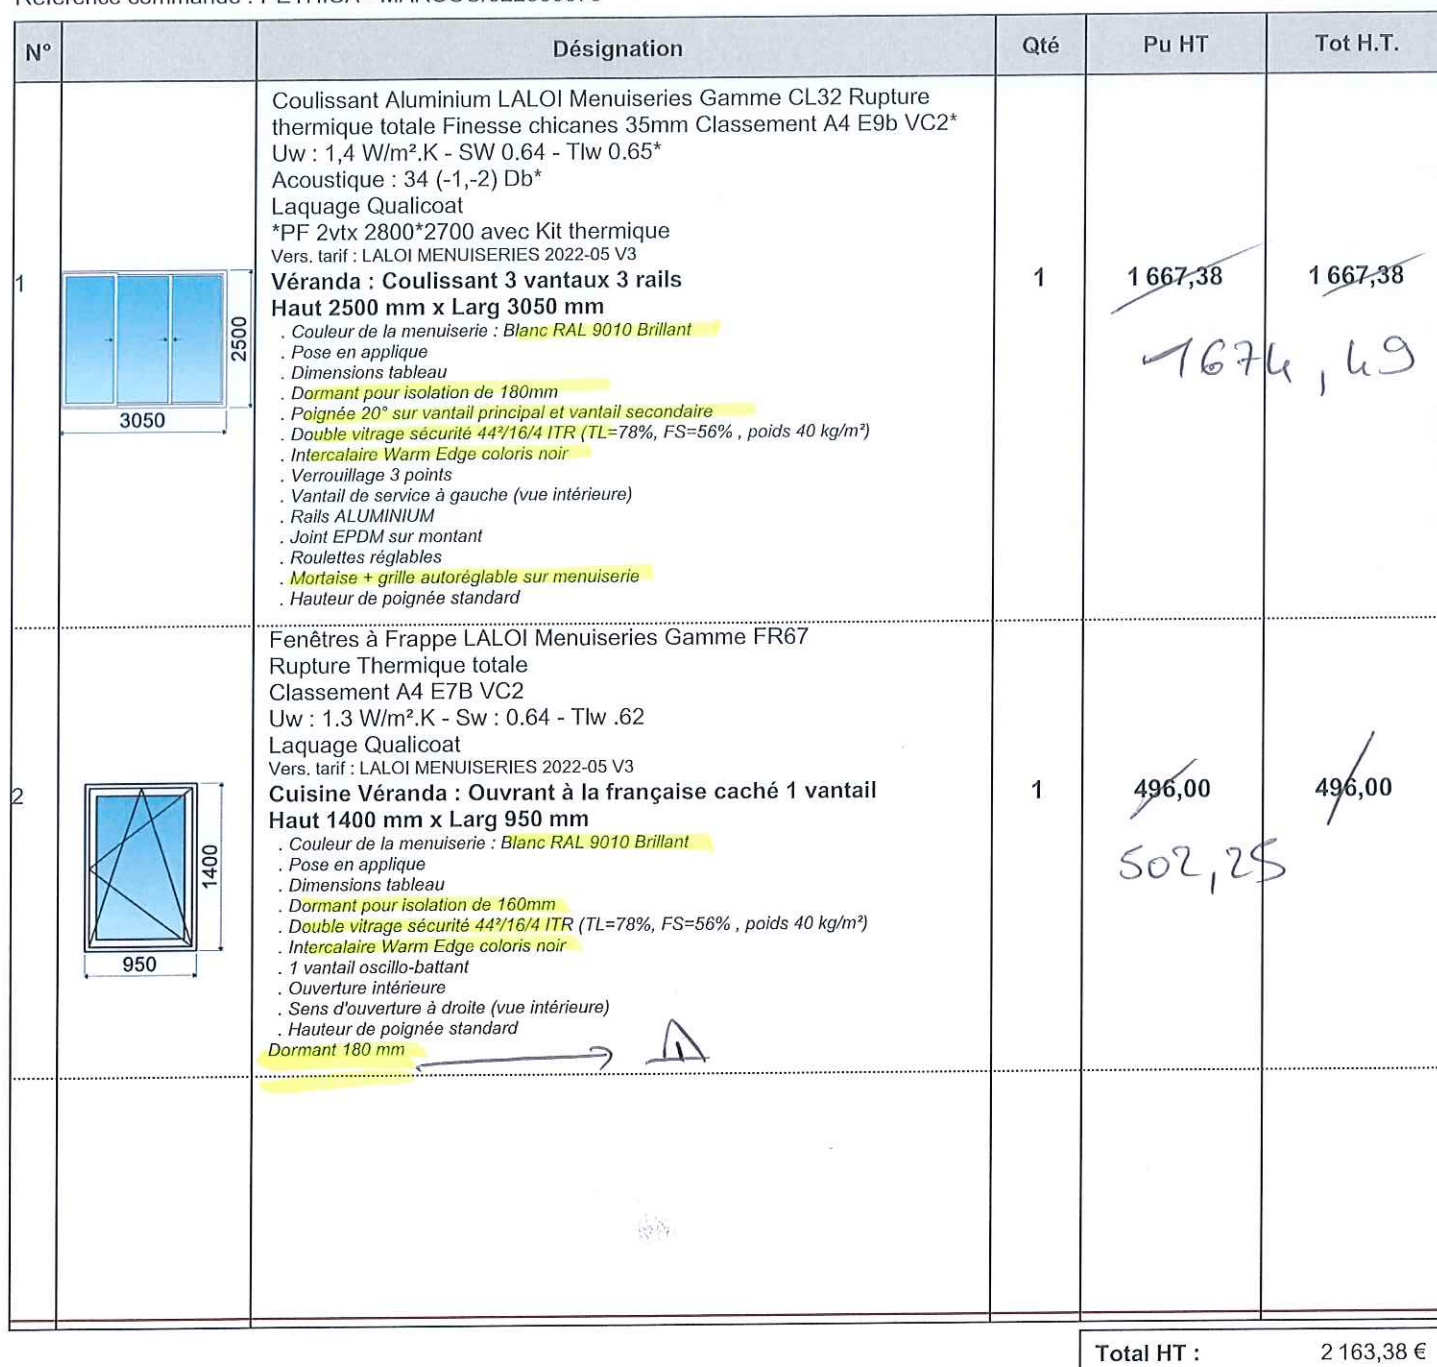 N° Désignation Qté Pu HT Tot H.T.
Coulissant Aluminium LALOI Menuiseries Gamme CL32 Rupture
thermique totale Finesse chicanes 35mm Classement A4 E9b VC2*
Uw : 1,4 W/m².K - SW 0.64 - Tlw 0.65*
Acoustique : 34 (-1,-2) Db*
Laquage Qualicoat
*PF 2vtx 2800*2700 avec Kit thermique
Vers. tarif : LALOI MENUISERIES 2022-05 V3
1 Véranda : Coulissant 3 vantaux 3 rails 1 1 667,38 1 667,38
Haut 2500 mm x Larg 3050 mm
. Couleur de la menuiserie : Blanc RAL 9010 Brillant
2500
. Pose en applique
1674,49
. Dimensions tableau
. Dormant pour isolation de 180mm
. Poignée 20° sur vantail principal et vantail secondaire
3050
. Double vitrage sécurité 44²/16/4 ITR (TL=78%, FS=56% , poids 40 kg/m²)
. Intercalaire Warm Edge coloris noir
. Verrouillage 3 points
. Vantail de service à gauche (vue intérieure)
. Rails ALUMINIUM
. Joint EPDM sur montant
. Roulettes réglables
. Mortaise + grille autoréglable sur menuiserie
. Hauteur de poignée standard
Fenêtres à Frappe LALOI Menuiseries Gamme FR67
Rupture Thermique totale
Classement A4 E7B VC2
Uw : 1.3 W/m².K - Sw : 0.64 - Tlw .62
Laquage Qualicoat
Vers. tarif : LALOI MENUISERIES 2022-05 V3
2 Cuisine Véranda : Ouvrant à la française caché 1 vantail 1 496,00 496,00
Haut 1400 mm x Larg 950 mm
. Couleur de la menuiserie : Blanc RAL 9010 Brillant
1400
. Pose en applique
502,25
. Dimensions tableau
. Dormant pour isolation de 160mm
. Double vitrage sécurité 44²/16/4 ITR (TL=78%, FS=56% , poids 40 kg/m²)
. Intercalaire Warm Edge coloris noir
950
. 1 vantail oscillo-battant
. Ouverture intérieure
. Sens d'ouverture à droite (vue intérieure)
. Hauteur de poignée standard
Dormant 180 mm
Total HT : 2 163,38 €